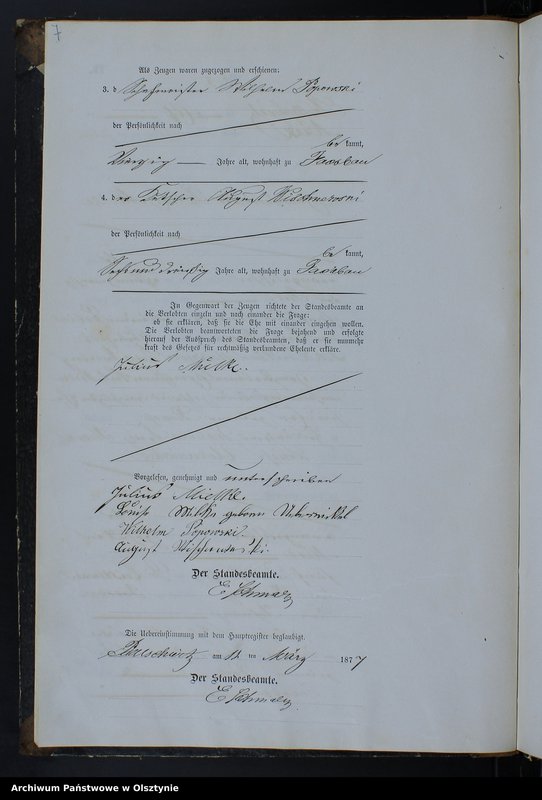 7
Als Zeugen waren zugezogen und erschienen:
3. Wilhelm Popowski
der Persönlichkeit nach
be kannt,
Vierzig Jahre alt, wohnhaft zu
4. der Kutscher August Wischnewski
der Persönlichkeit nach
be kannt,
Sechsunddreißig Jahre alt, wohnhaft zu
In Gegenwart der Zeugen richtete der Standesbeamte an
die Verlobten einzeln und nach einander die Frage:
ob sie erklären, daß sie die Ehe mit einander eingehen wollen.
Die Verlobten beantworteten die Frage bejahend und erfolgte
hierauf der Ausspruch des Standesbeamten, daß er sie nunmehr
kraft des Gesetzes für rechtmäßig verbundene Eheleute erkläre.
Julius
Vorgelesen, genehmigt und unterschrieben
Julius Mielke.
geborn
Wilhelm Popowski.
August
Der Standesbeamte.
Die Uebereinstimmung mit dem Hauptregister beglaubigt.
am 12 ten März 1877
Der Standesbeamte.
Archiwum Państwowe w Olsztynie